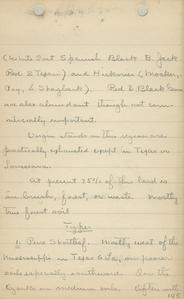 (White Post Spanish Black B. Jack
Red & Texan) and Hickories (Mocker,
Pig, & Shagbark). Red & Black Gum
are also abundant though not com-
mercially important.
Virgin stands in this region are
practically exhausted except in Texas or
Louisiana.
At present 75% of this land is
in brush, forest, or waste. Mostly
this forest soil
Types
1. Pine Shortleaf. Mostly west of the
Mississippi in Texas & La, on poorer
soils especially southward. In the
Ozarks on medium soils.
195